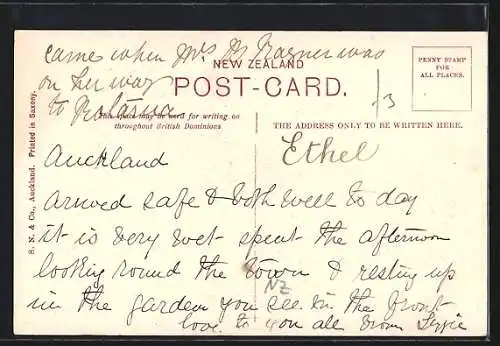 came when Mrs Dr Wagner was
NEW ZEALAND
on her way
POST-CARD.
to Rotorua
PENNY STAMP
FOR
ALL PLACES.
This space may be used for writing on
throughout British Dominions
THE ADDRESS ONLY TO BE WRITTEN HERE.
S. N. & Co., Auckland. Printed in Saxony.
3
Auckland
Ethel
arrived safe & both well to day
it is very wet spent the afternoon
looking round the town & resting up
NZ
in the garden you see in the front
love to you all from Lizzie